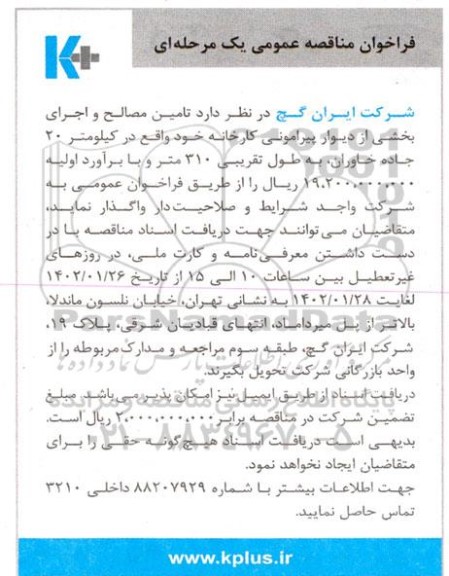 فراخوان مناقصه عمومی یک مرحله‌ای
K+
شرکت ایران گچ در نظر دارد تامین مصالح و اجرای
بخشی از دیوار پیرامونی کارخانه خود واقع در کیلومتر ۲۰
جاده خاوران، به طول تقریبی ۳۱۰ متر و با برآورد اولیه
۱۹،۲۰۰،۰۰۰،۰۰۰ ریال را از طریق فراخوان عمومی به
شرکت واجد شرایط و صلاحیت‌دار واگذار نماید،
متقاضیان می‌توانند جهت دریافت اسناد مناقصه با در
دست داشتن معرفی‌نامه و کارت ملی، در روزهای
غیرتعطیل بین ساعات ۱۰ الی ۱۵ از تاریخ ۱۴۰۲/۰۱/۲۶
لغایت ۱۴۰۲/۰۱/۲۸ به نشانی تهران، خیابان نلسون ماندلا،
بالاتر از پل میرداماد، انتهای قبادیان شرقی، پلاک ۱۹،
شرکت ایران گچ، طبقه سوم مراجعه و مدارک مربوطه را از
واحد بازرگانی شرکت تحویل بگیرند.
دریافت اسناد از طریق ایمیل نیز امکان پذیر می‌باشد. مبلغ
تضمین شرکت در مناقصه برابر ۲،۰۰۰،۰۰۰،۰۰۰ ریال است.
بدیهی است دریافت اسناد هیچ‌گونه حقی را برای
متقاضیان ایجاد نخواهد نمود.
جهت اطلاعات بیشتر با شماره ۸۸۲۰۷۹۲۹ داخلی ۳۲۱۰
تماس حاصل نمایید.
www.kplus.ir
ParsNamadData
۰۲۱-۸۸۳۴۹۶۷۰-۵